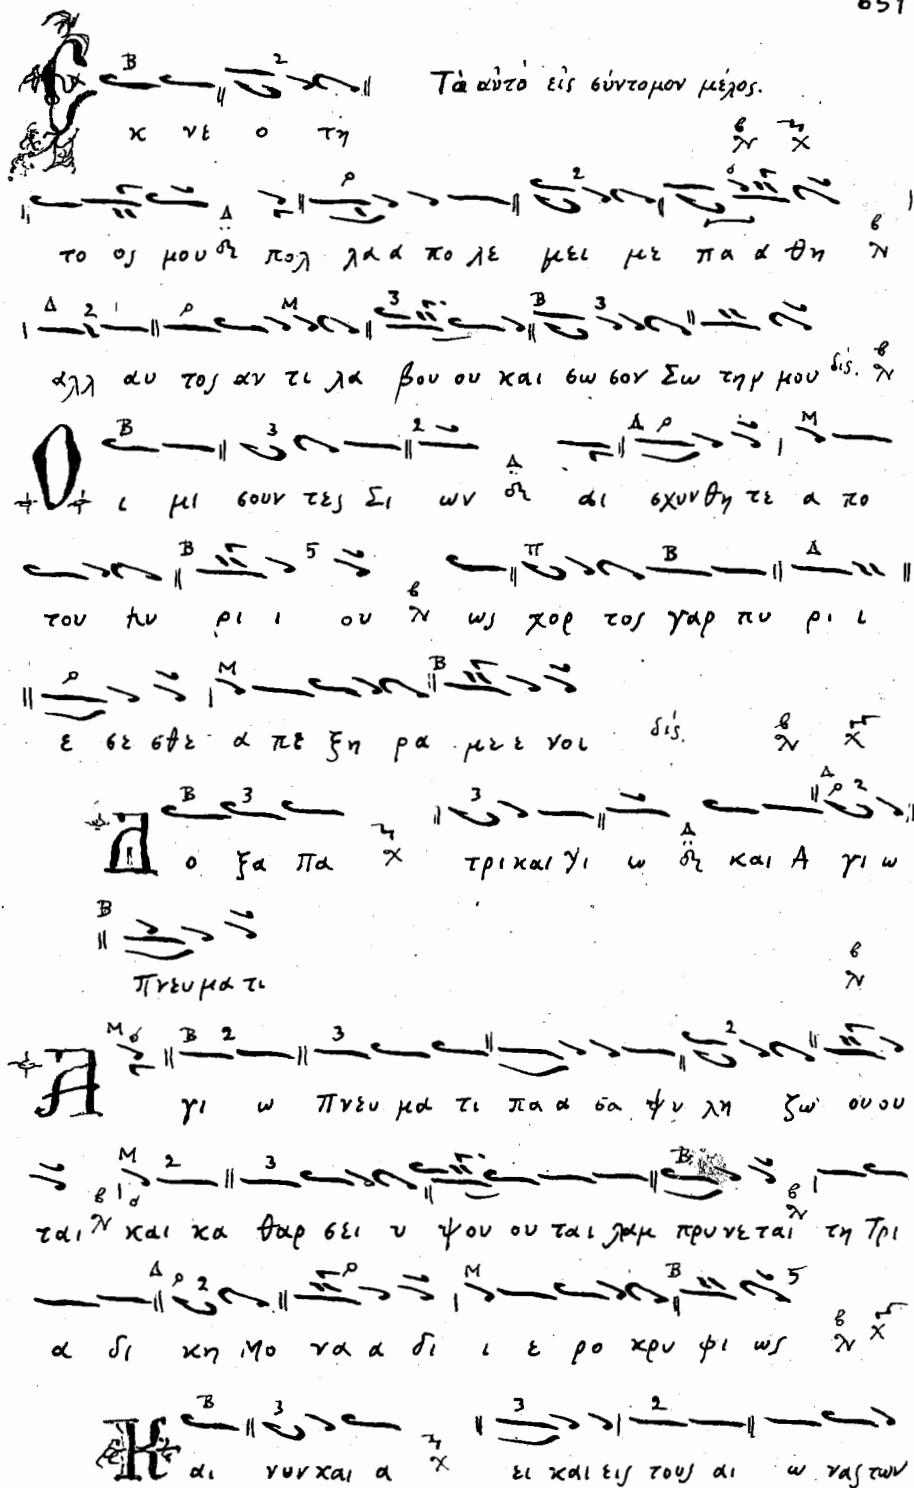 651
Τὸ αὐτὸ εἰς σύντομον μέλος.
Ε κ νε ο τη
το ος μου πολ λα α πο λε μει με πα α θη
αλλ αυ τος αν τι λα βου ου και σω σον Σω τηρ μου δίς.
Ο ι μι σουν τες Σι ων αι σχυνθη τε α πο
του Κυ ρι ι ου ως χορ τος γαρ πυ ρι ι
ε σε σθε α πε ξη ρα με ε νοι δίς.
Δ ο ξα πα τρι και Υι ω και Α γι ω
Πνευ μα τι
Α γι ω Πνευ μα τι πα α σα ψυ χη ζω ου ου
ται και κα θαρ σει υ ψου ου ται λαμ πρυ νε ται τη Τρι
α δι κη Μο να α δι ι ε ρο κρυ φι ως
Κ αι νυν και α ει και εις τους αι ω νας των